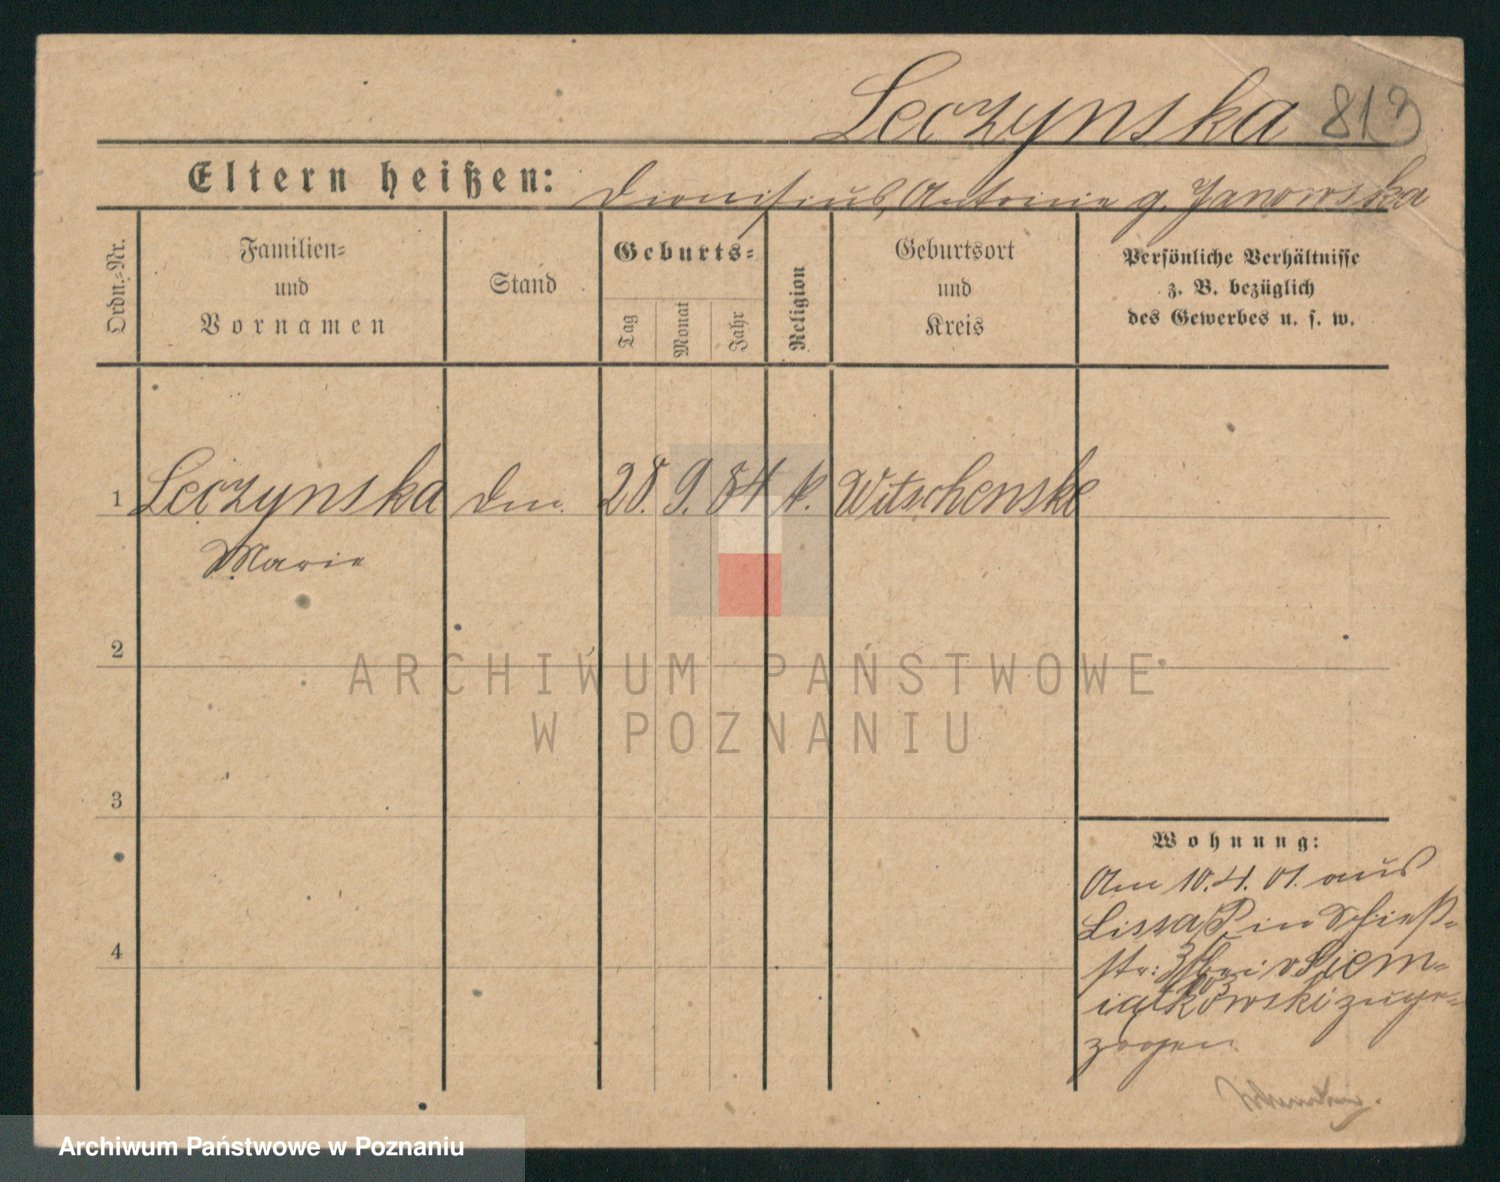 Leczynska 813
Eltern heißen: Dionisius, Antonie g. Janowska
Ordn.=Nr.
Familien=
und
Vornamen
Stand
Geburts=
Tag
Monat
Jahr
Religion
Geburtsort
und
Kreis
Persönliche Verhältnisse
z. B. bezüglich
des Gewerbes u. s. w.
1 Leczynska 28. 9. 84 k. Witschenske
Marie
2
ARCHIWUM PAŃSTWOWE
W POZNANIU
3
Wohnung:
Am 10.4.01. aus
Lissa P. in Schieß=
str: bei v Siem=
iatkowski zuge=
zogen.
4
Archiwum Państwowe w Poznaniu